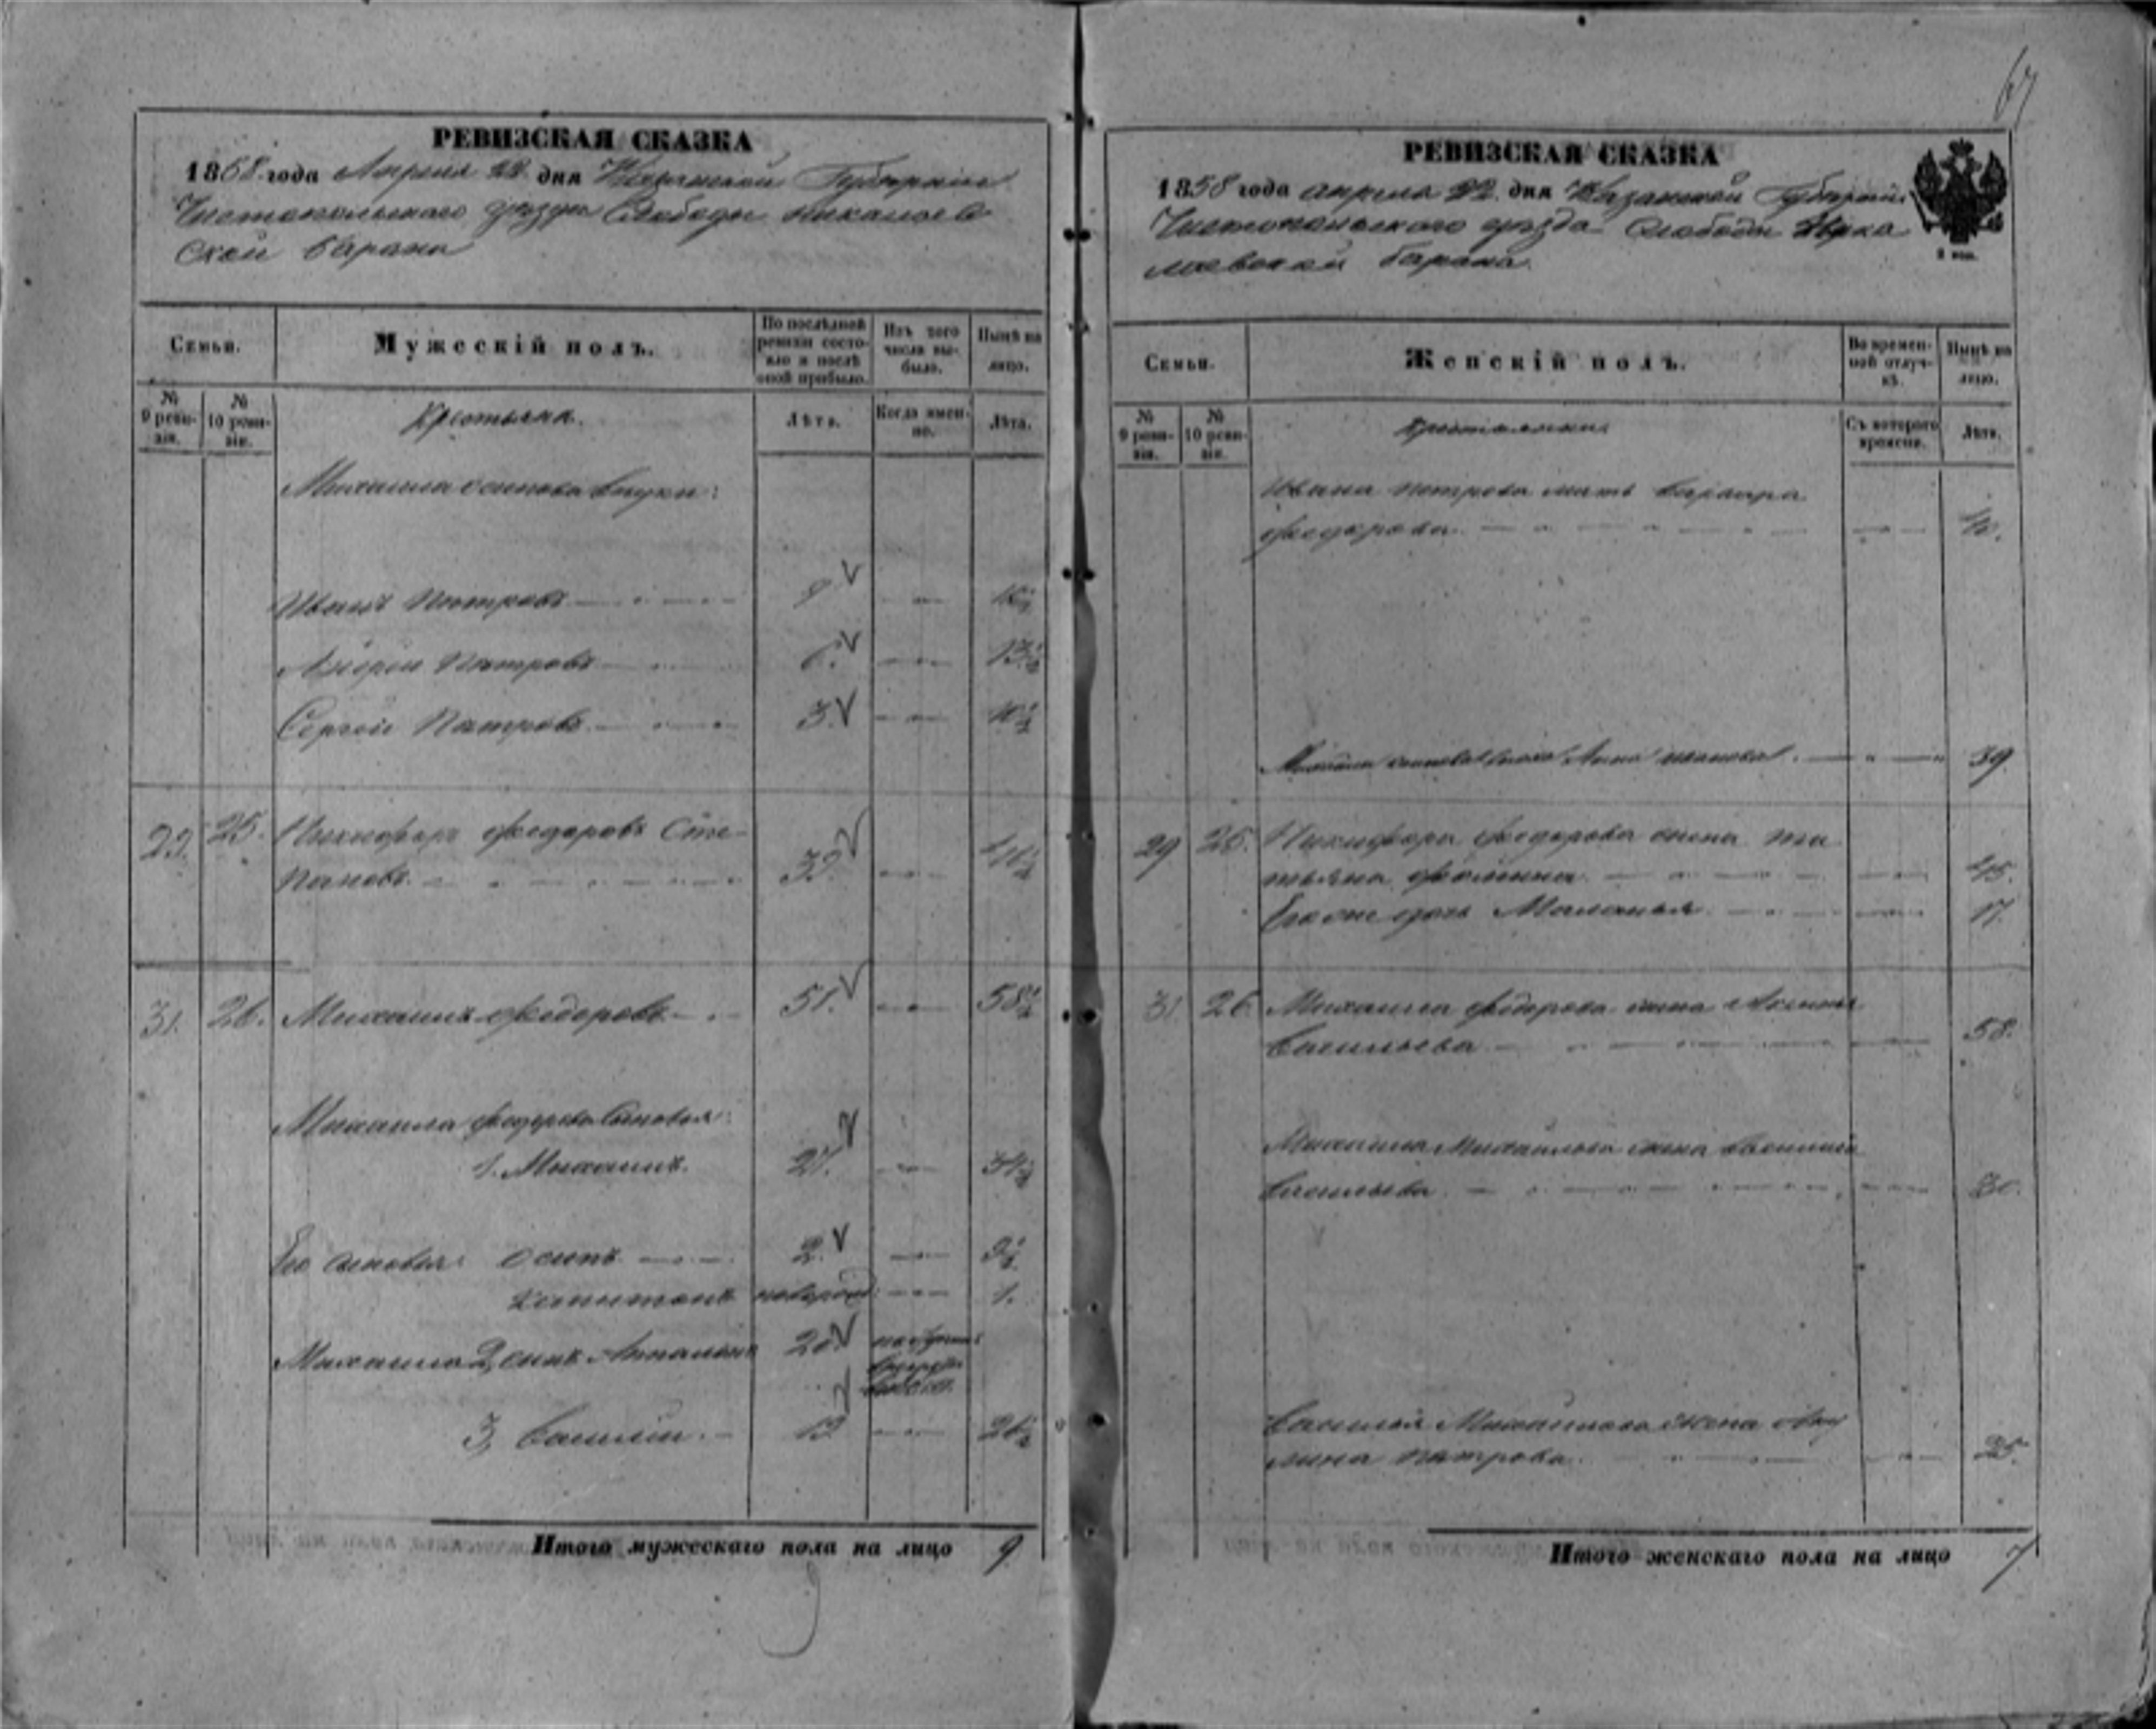 67
РЕВИЗСКАЯ СКАЗКА
1858 года Апреля 22 дня Казанской Губернии
Чистопольскаго уезда Слободы Никольев
ской Баранъ
Семьи.
Мужескій полъ.
По послѣдней ревизіи состояло и послѣ оной прибыло.
Изъ того числа выбыло.
Нынѣ на лицо.
№ 9 ревизіи.
№ 10 ревизіи.
Крестьяне.
Лѣта.
Когда именно.
Лѣта.
Михаила Осипова внуки:
Иванъ Петровъ 9 16½
Андрей Петровъ 6. 13½
Сергей Петровъ 3. 10½
29. 25. Никифоръ Федоровъ Сте-
пановъ. 39. 46½
31. 26. Михаилъ Федоровъ 51. 58½
Михаила Федорова сыновья:
1. Михаилъ. 27. 34½
Его сыновья: Осипъ 2. 9½
Капитонъ новорожд. 1.
Михаила 2, сынъ 20.
3, Василий. 19 26½
Итого мужескаго пола на лицо 9
РЕВИЗСКАЯ СКАЗКА
1858 года апреля 22 дня Казанской Губернии
Чистопольскаго уезда Слободы Нико
лаевской Баранъ
2 коп.
Семьи.
Женскій полъ.
Во временной отлучкѣ.
Нынѣ на лицо.
№ 9 ревизіи.
№ 10 ревизіи.
Съ котораго времени.
Лѣта.
Ивана Петрова мать Варвара
Федорова.
Михаила Осипова Анна 39.
29 25. Никифора Федорова жена Та
тьяна Фомина 45.
Его же дочь Маланья 17.
31. 26 Михаила Федорова жена Аксинья
Васильева 58.
Михаила Михайлова жена
Васильева 30.
Василья Михайлова жена Аку
лина Петрова. 25.
Итого женскаго пола на лицо 7